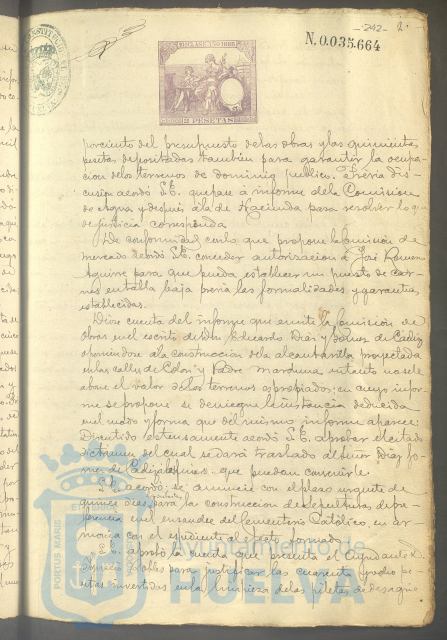 -242- 2.
N.0.035.664
11ª CLASE AÑO 1888
2 PESETAS
porciento del presupuesto de las obras y las quinientas
pesetas depositadas tambien para garantir la ocupa-
cion de los terrenos de dominio publico. Previa dis-
cusion acordó S.E. que pase á informe de la Comision
de Agua y despues á la de Hacienda para resolver lo que
de justicia corresponda.
De conformidad con lo que propone la Comision de
mercado acordó S.E. conceder autorizacion á José Romero
Aguirre para que pueda establecer un puesto de car-
nes en tabla baja previa las formalidades y garantias
establecidas.
Diose cuenta del informe que emite la Comision de
obras en el escrito de Don Eduardo Diaz y Gomez de Cadiz
oponiendose á la construccion de la alcantarilla proyectada
en las calles de Colon y Padre Marchena en tanto no se le
abone el valor de los terrenos expropiados; en cuyo infor-
me se propone se deniegue la instancia deducida
en el modo y forma que del mismo informe aparece.
Discutido estensamente acordó S.E. aprobar el citado
dictamen del cual se dará traslado al Señor Diaz Go-
mez de Cadiz á los fines que puedan convenirle.
S.E. acordó se anuncie con el plazo urgente de
quince dias para la construccion de sepulturas de pre-
ferencia en el ensanche del Cementerio Católico, en ar-
monia con el espediente al efecto formado.
S.E. aprobó la cuenta que presenta el Ayudante D.
Robles para justificar las cuarenta y ocho pe-
setas invertidas en la limpieza de las piletas de desagüe
PORTUS MARIS
Ayuntamiento de
HUELVA